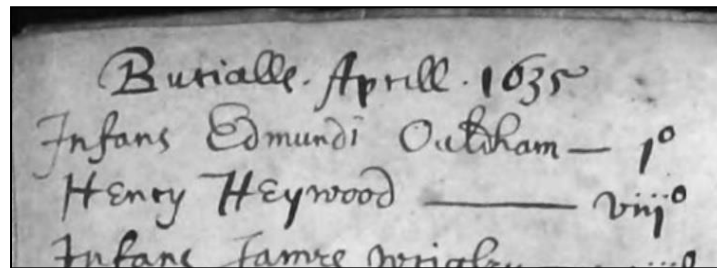 Burialle. Aprill. 1635
Infans Edmundi Ouldham — 1º
Henry Heywood —— viijº
Infans Jamre wrigley